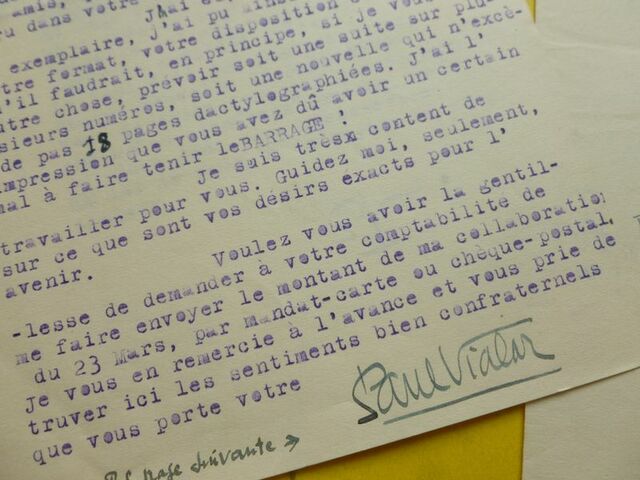 amis, votre
u dans votre J'ai eu
exemplaire, j'ai pu
tre format, votre disposition
u'il faudrait, en principe, si je vous
utre chose, prévoir soit une suite sur plu-
sieurs numéros, soit une nouvelle qui n'excè-
de pas 18 pages dactylographiées. J'ai l'
impression que vous avez dû avoir un certain
mal à faire tenir leBARRAGE !
Je suis trèsx content de
travailler pour vous. Guidez moi, seulement,
sur ce que sont vos désirs exacts pour l'
avenir.
Voulez vous avoir la gentil-
-lesse de demander à votre comptabilité de
me faire envoyer le montant de ma collaboration
du 23 Mars, par mandat-carte ou chèque-postal.
Je vous en remercie à l'avance et vous prie de
truver ici les sentiments bien confraternels
que vous porte votre
Paul Vialar
page suivante →